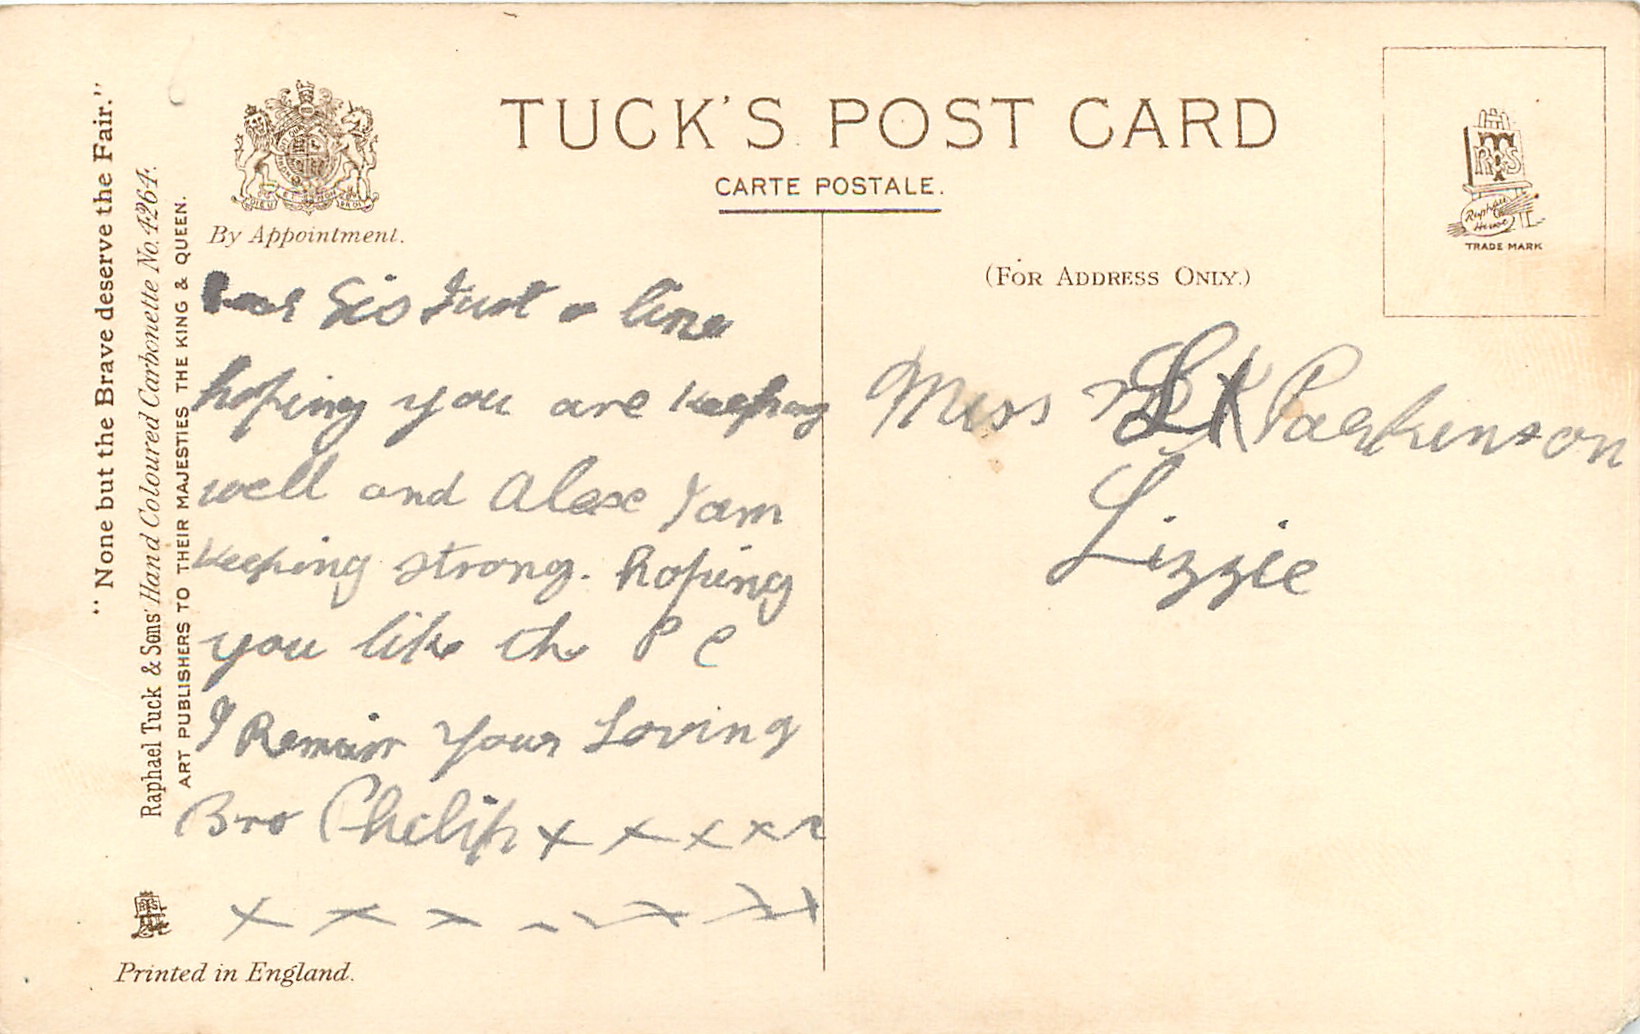 "None but the Brave deserve the Fair."
Raphael Tuck & Sons' Hand Coloured Carbonette No. 4264.
ART PUBLISHERS TO THEIR MAJESTIES THE KING & QUEEN.
By Appointment.
TUCK'S POST CARD
CARTE POSTALE.
(FOR ADDRESS ONLY.)
Raphael
House
TRADE MARK
Dear Sis Just a line
hoping you are keeping
well and Alex I am
keeping strong. hoping
you like the P C
I Remain Your Loving
Bro Philip x x x x x
x x x x x x
Miss Parkinson
Lizzie
Printed in England.